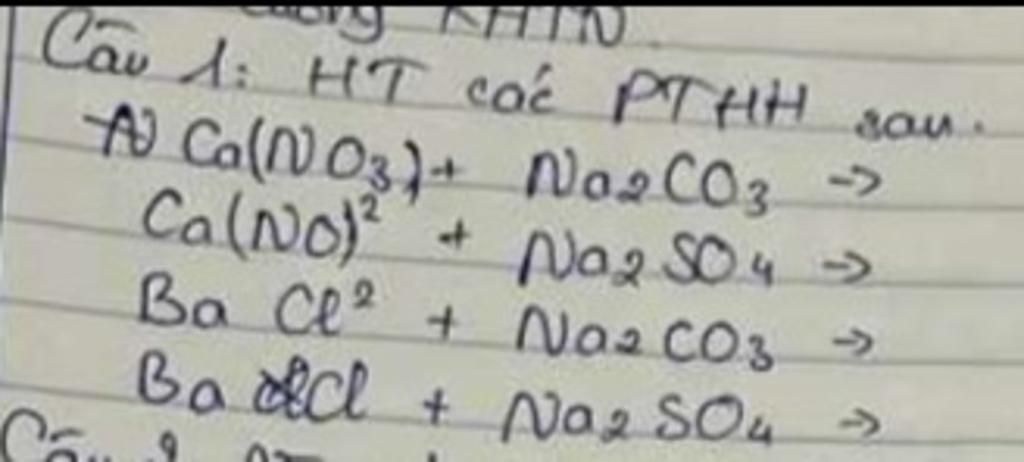 KHTN
Câu 1: HT các PTHH sau.
Ca(NO3)+ Na2CO3 ->
Ca(NO)² + Na2SO4 ->
Ba Cl² + Na2CO3 ->
Ba Cl + Na2SO4 ->
Câu